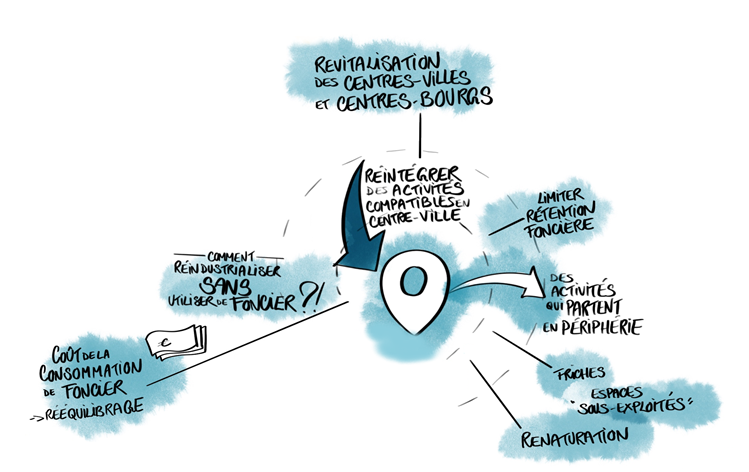 REVITALISATION
DES CENTRES-VILLES
ET CENTRES-BOURGS
RÉINTÉGRER
DES ACTIVITÉS
COMPATIBLES EN
CENTRE-VILLE
LIMITER
RÉTENTION
FONCIÈRE
COMMENT
RÉINDUSTRIALISER
SANS
UTILISER DE FONCIER ?!
DES
ACTIVITÉS
QUI PARTENT
EN PÉRIPHÉRIE
€
COÛT DE LA
CONSOMMATION
DE FONCIER
-> RÉÉQUILIBRAGE
FRICHES
ESPACES
"SOUS-EXPLOITÉS"
RENATURATION